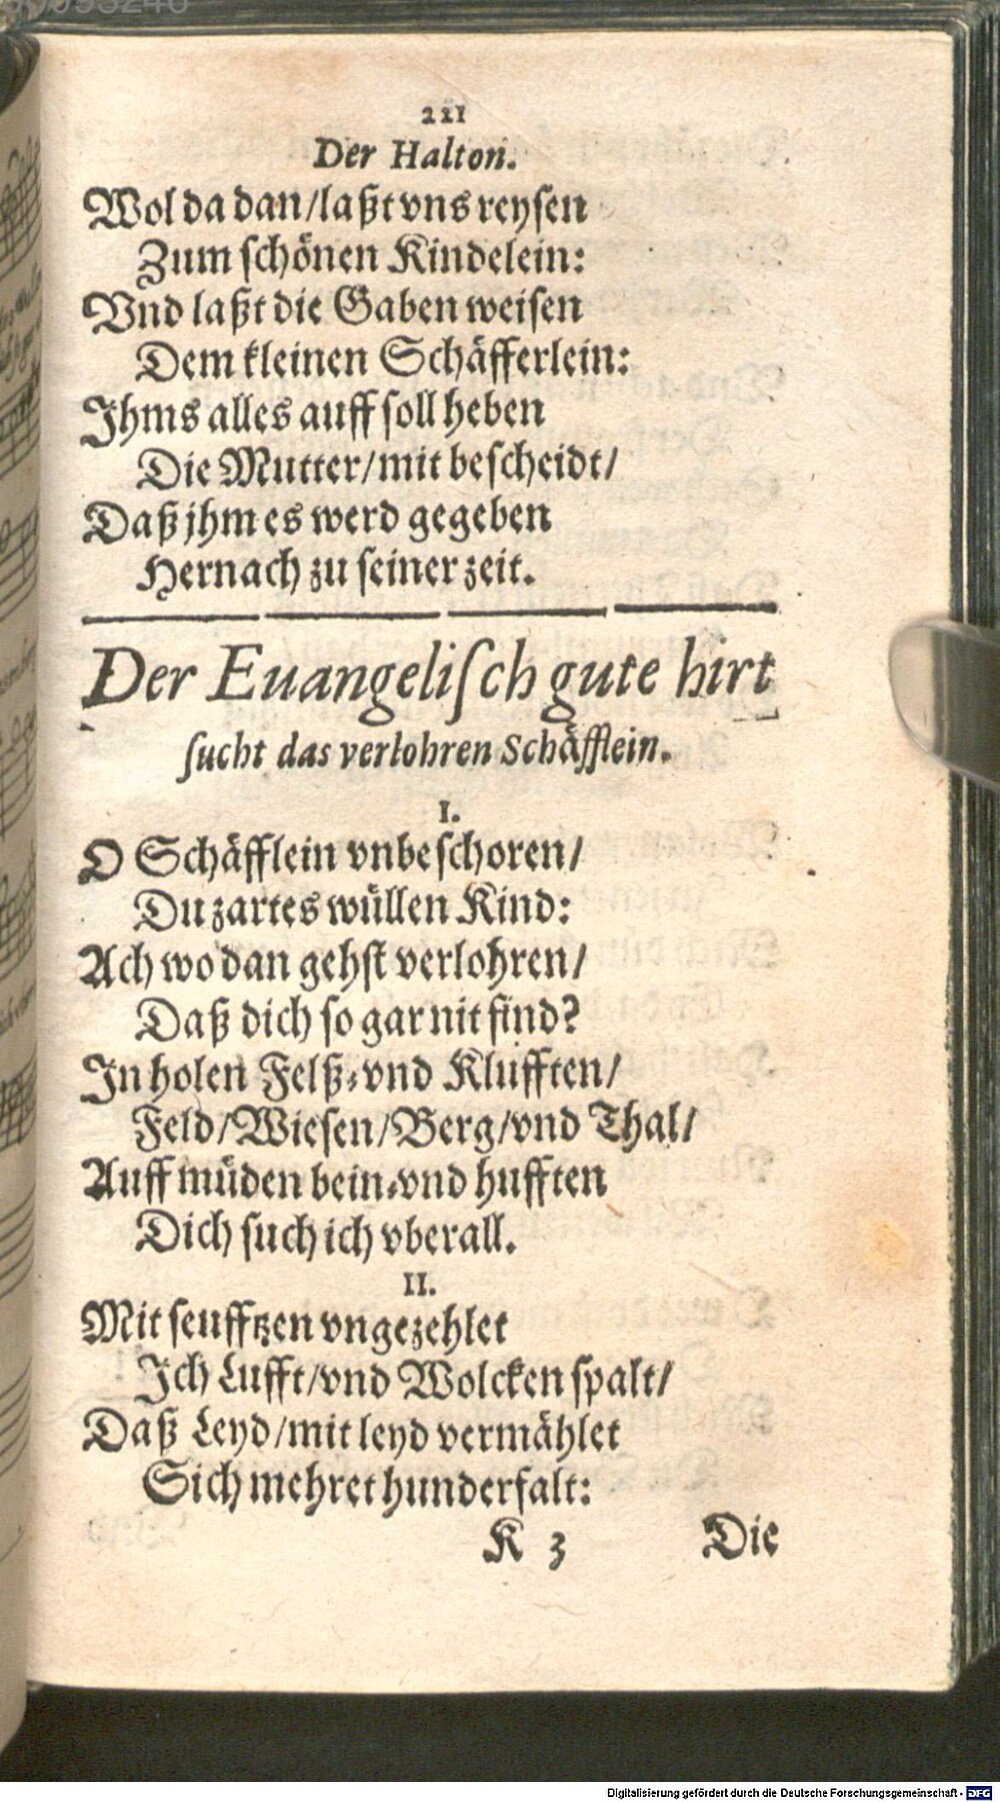 221
Der Halton.
Wol da dan/laßt vns reysen
Zum schönen Kindelein:
Vnd laßt die Gaben weisen
Dem kleinen Schäfferlein:
Ihms alles auff soll heben
Die Mutter/mit bescheidt/
Daß jhm es werd gegeben
Hernach zu seiner zeit.
Der Euangeliſch gute hirt
ſucht das verlohren Schäfflein.
I.
O Schäfflein vnbeschoren/
Du zartes wüllen Kind:
Ach wo dan gehst verlohren/
Daß dich so gar nit find?
In holen Felß-vnd Klufften/
Feld/Wiesen/Berg/vnd Thal/
Auff müden bein-vnd hufften
Dich such ich vberall.
II.
Mit seufftzen vngezehlet
Ich Lufft/vnd Wolcken spalt/
Daß Leyd/mit leyd vermählet
Sich mehret hunderfalt:
K 3 Die
Digitalisierung gefördert durch die Deutsche Forschungsgemeinschaft - DFG